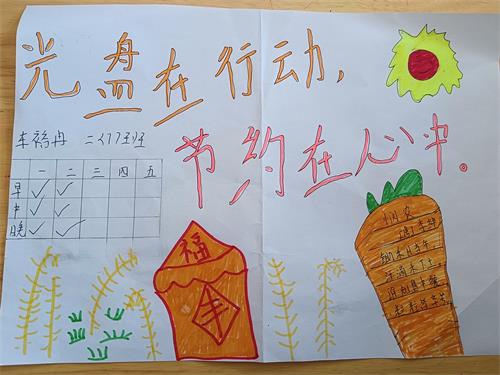 光盘在行动,
节约在心中。
二(7)班
一 二 三 四 五
早 ✓ ✓
中 ✓ ✓
晚 ✓ ✓
福
丰
悯农
唐 李绅
锄禾日当午
汗滴禾下土
谁知盘中餐
粒粒皆辛苦